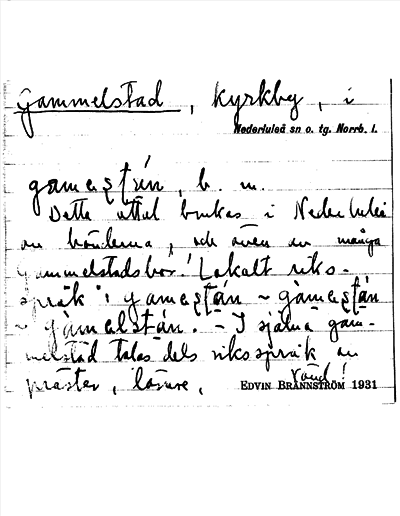 Gammelstad, kyrkby, i
Nederluleå sn o. tg. Norrb. l.
gamelstén, b. m.
Detta uttal brukas i Nederluleå
av bönderna, och även av många
Gammelstadsbor! Lokalt riks-
språk: gamestán ~ gàmestán
~ gàmelstán. – I själva gam-
melstad talas dels riksspråk av
präster, lärare,
vänd!
EDVIN BRÄNNSTRÖM 1931